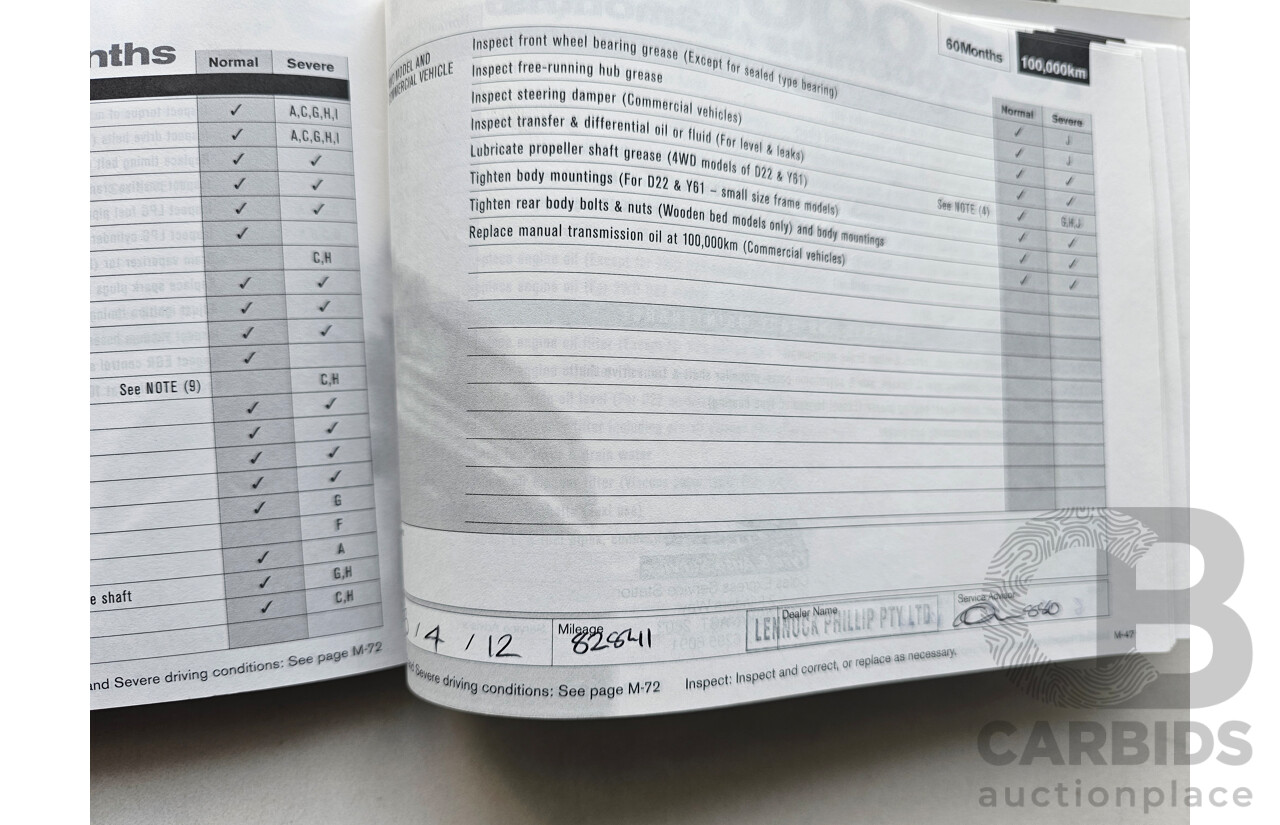 nths
Normal Severe
✓ A,C,G,H,I
✓ A,C,G,H,I
✓ ✓
✓ ✓
✓ ✓
✓
C,H
✓ ✓
✓ ✓
✓ ✓
✓
See NOTE (9) C,H
✓ ✓
✓ ✓
✓ ✓
✓ ✓
✓ G
F
✓ A
✓ G,H
e shaft ✓ C,H
nd Severe driving conditions: See page M-72
60Months 100,000km
MODEL AND
COMMERCIAL VEHICLE
Normal Severe
Inspect front wheel bearing grease (Except for sealed type bearing) ✓ J
Inspect free-running hub grease ✓ J
Inspect steering damper (Commercial vehicles) ✓ ✓
Inspect transfer & differential oil or fluid (For level & leaks) ✓ ✓
Lubricate propeller shaft grease (4WD models of D22 & Y61) See NOTE (4) ✓ G,H,J
Tighten body mountings (For D22 & Y61 – small size frame models) ✓ ✓
Tighten rear body bolts & nuts (Wooden bed models only) and body mountings ✓ ✓
Replace manual transmission oil at 100,000km (Commercial vehicles) ✓ ✓
/ 4 / 12
Mileage
82841
Dealer Name
LENNOCK PHILLIP PTY LTD
Service Advisor
8860
M-47
Severe driving conditions: See page M-72 Inspect: Inspect and correct, or replace as necessary.
CARBIDS
auctionplace